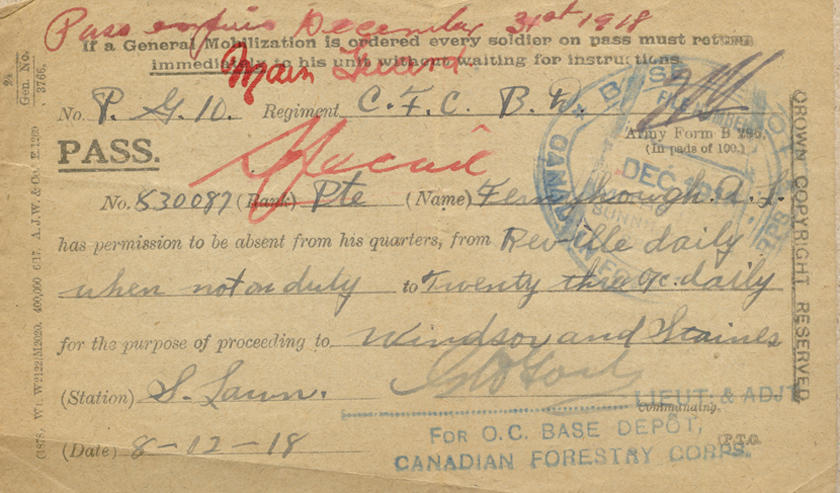 Pass expires December 31st 1918
If a General Mobilization is ordered every soldier on pass must return
immediately to his unit without waiting for instructions.
Main Guard.
No. P. G. 10. Regiment C. F. C. B. D.
Army Form B 295.
(In pads of 100.)
PASS.
Special
No. 530087 (Rank) Pte (Name) Fernyhough. A. L.
has permission to be absent from his quarters, from Reville daily
when not on duty to Twenty three o/c. daily
for the purpose of proceeding to Windsor and Staines
(Station) S. Lawn.
LIEUT: & ADJT
Commanding.
(Date) 8-12-18
FOR O.C. BASE DEPÔT,
(P.T.O.
CANADIAN FORESTRY CORPS.
BASE
FILE NUMBER
DEC
SUNNI
CANADIAN FO
CORPS
24
Gen. No.
3766.
(1878. Wt. W2122/M2020. 400,000 6/17. A.J.W. & Co. E.1290
CROWN COPYRIGHT RESERVED